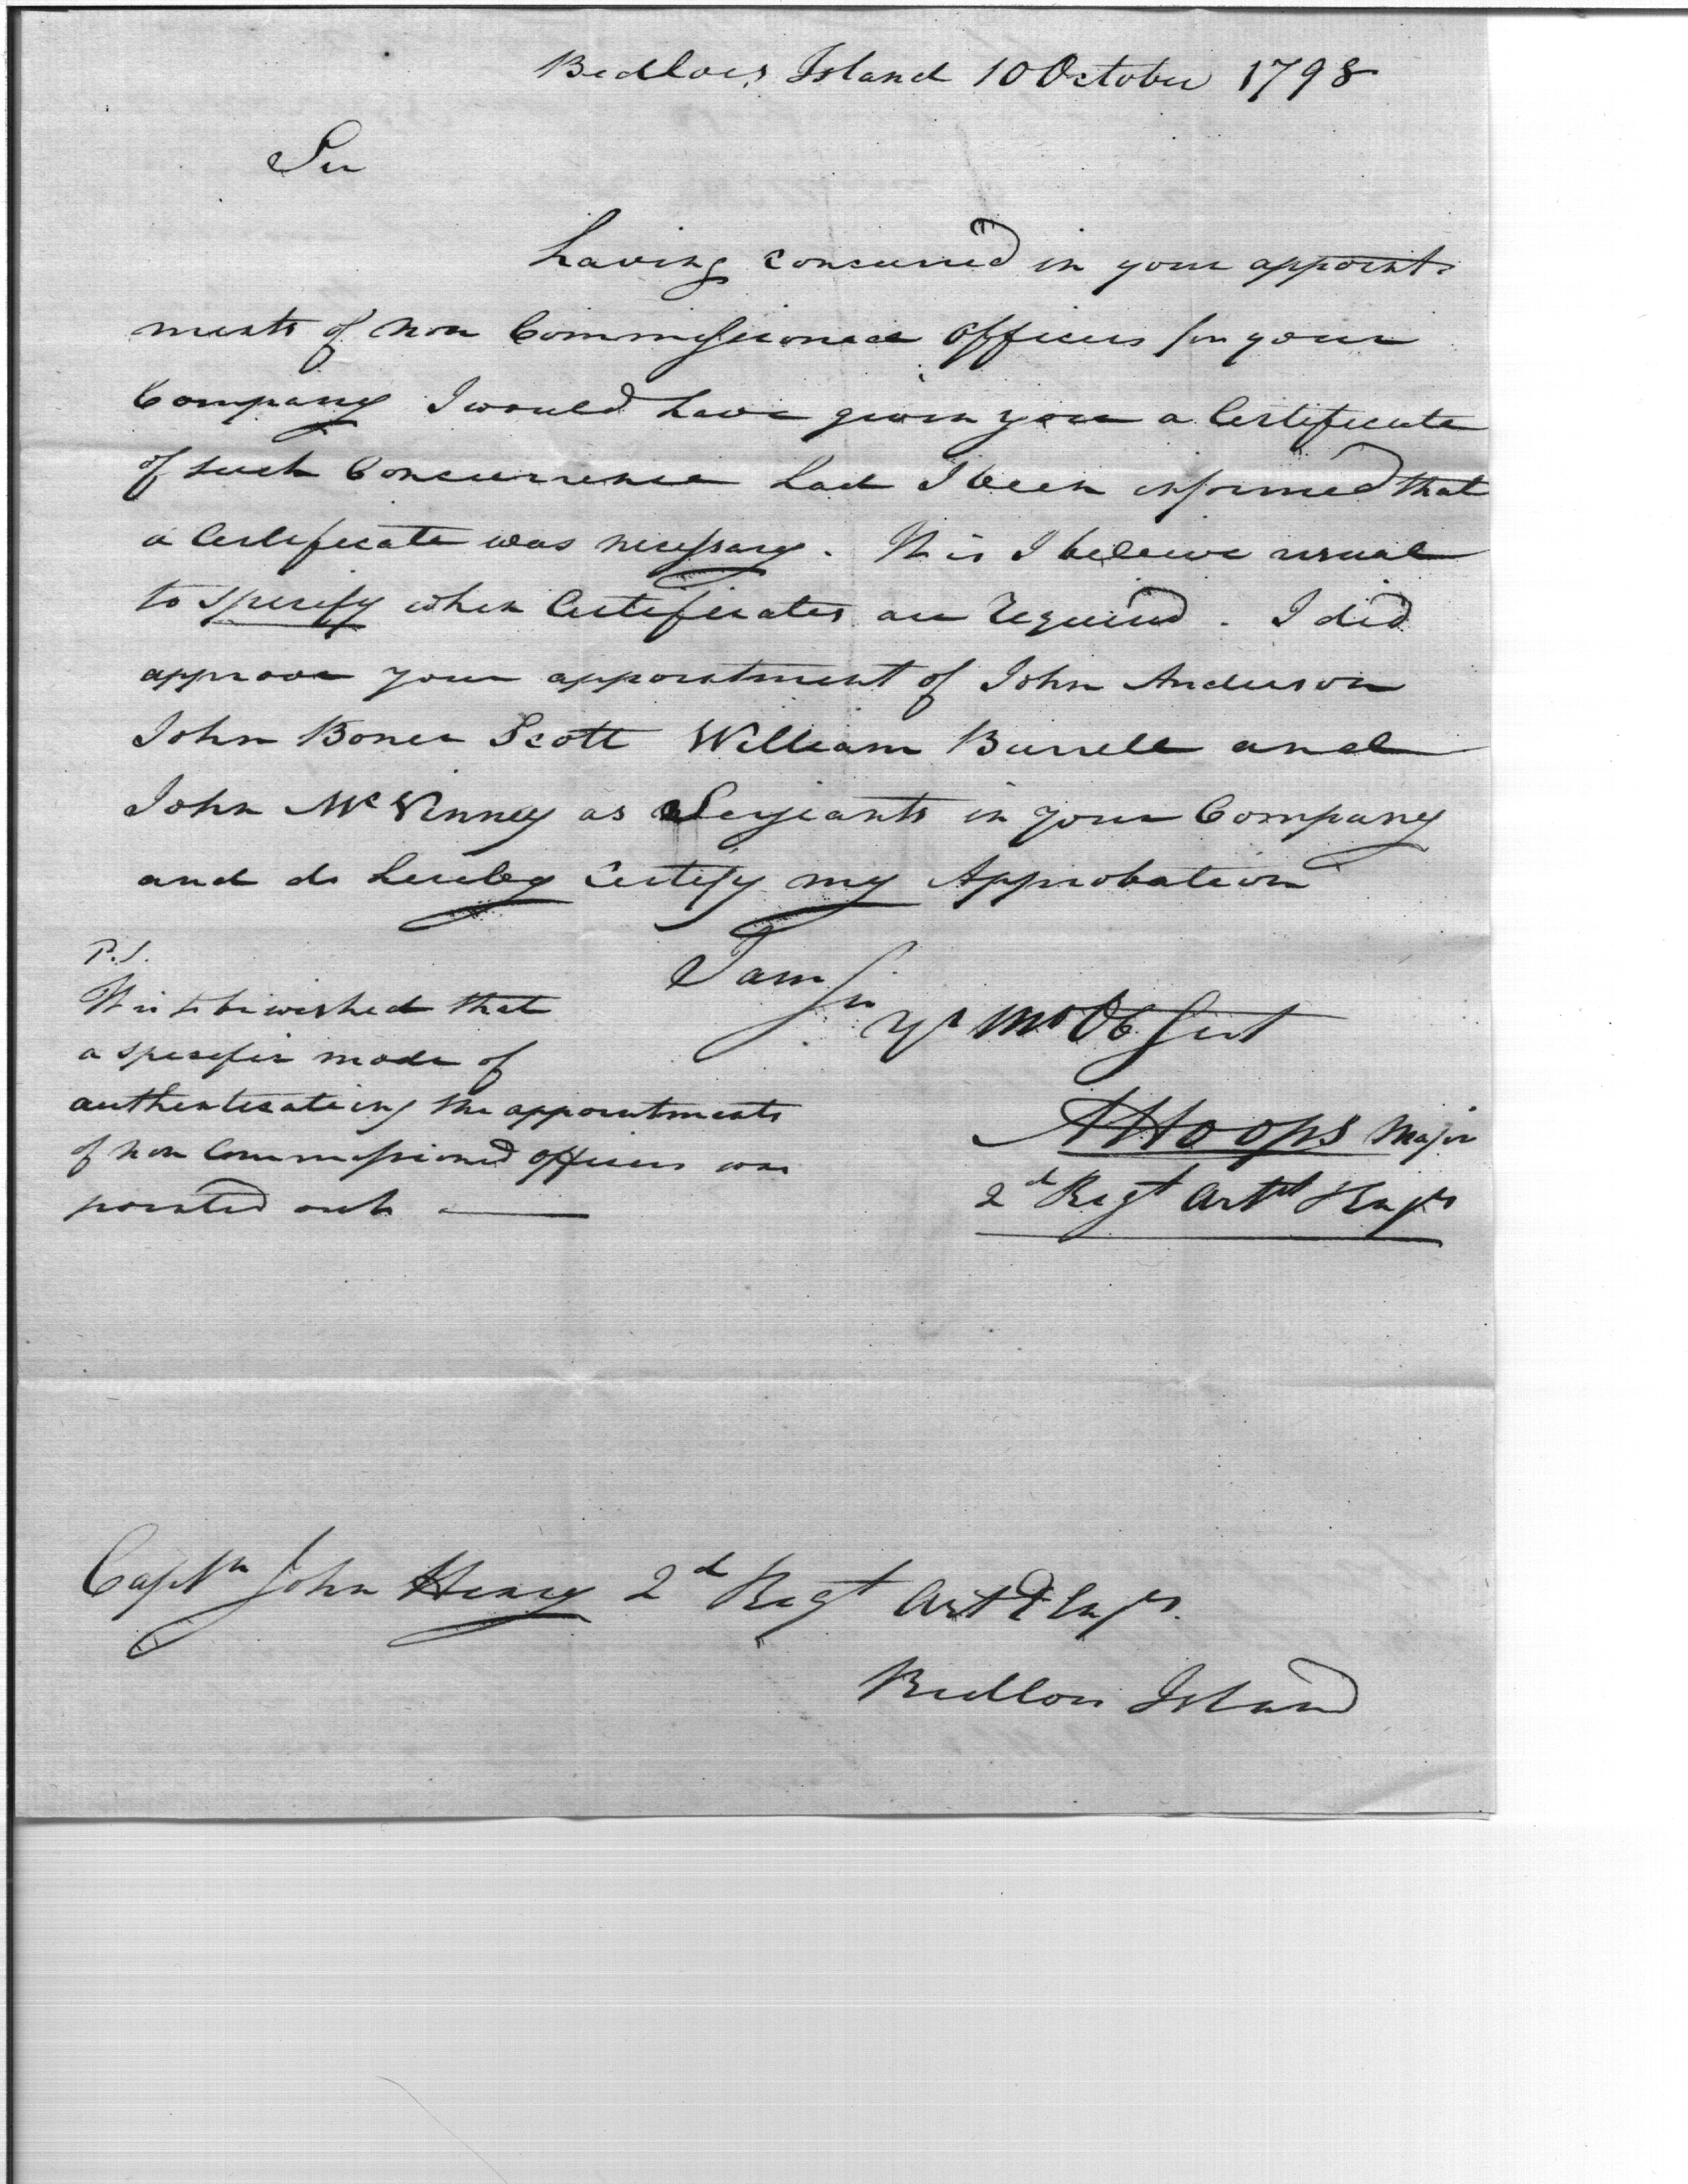 Bedloes Island 10 October 1798
Sir
having concurred in your appoint-
ments of non Commissioned officers for your
Company I would have given you a Certificate
of such Concurrence had I been informed that
a Certificate was necessary. It is I believe usual
to specify when Certificates are required. I did
approve your appointment of John Anderson
John Boner Scott William Burrell and
John McKinney as Serjeants in your Company
and do hereby certify my Approbation
I am
Sir
Yr Mo Ob Sert
AHoops Major
2d Regt Artts & Engrs
P.S.
It is to be wished that
a specific mode of
authenticating the appointments
of non Commissioned officers was
pointed out
Captn John Henry 2d Regt Art & Engrs.
Bedlois Island